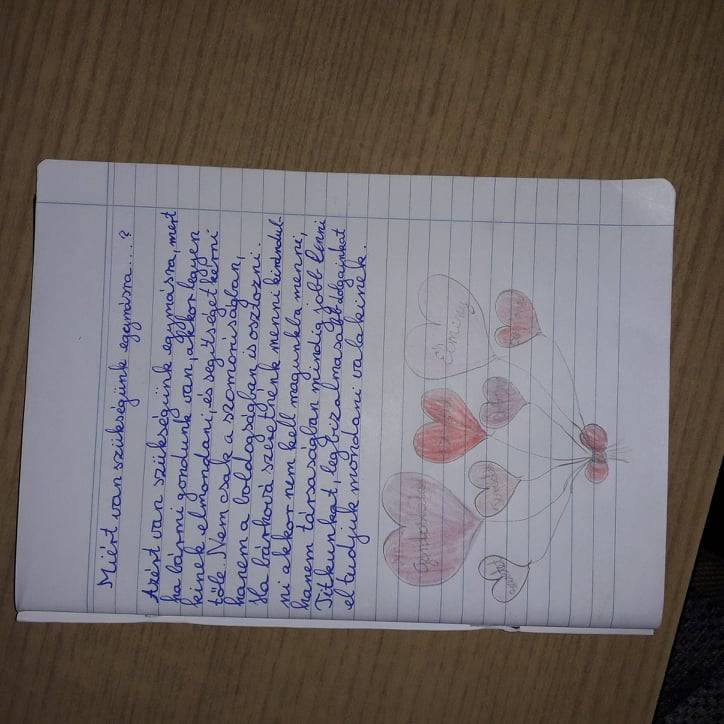 Miért van szükségünk egymásra...?
Azért van szükségünk egymásra, mert
ha bármi gondunk van, akkor legyen
kinek elmondani, és segítséget kérni
tőle. Nem csak a szomorúságban,
hanem a boldogságban is osztozni.
Ha bárhová szeretnénk menni kirándul-
ni akkor nem kell magunkba menni,
hanem társaságban mindig jobb lenni
Titkunkat, legbizalmasabb dolgainkat
el tudjuk mondani valakinek.